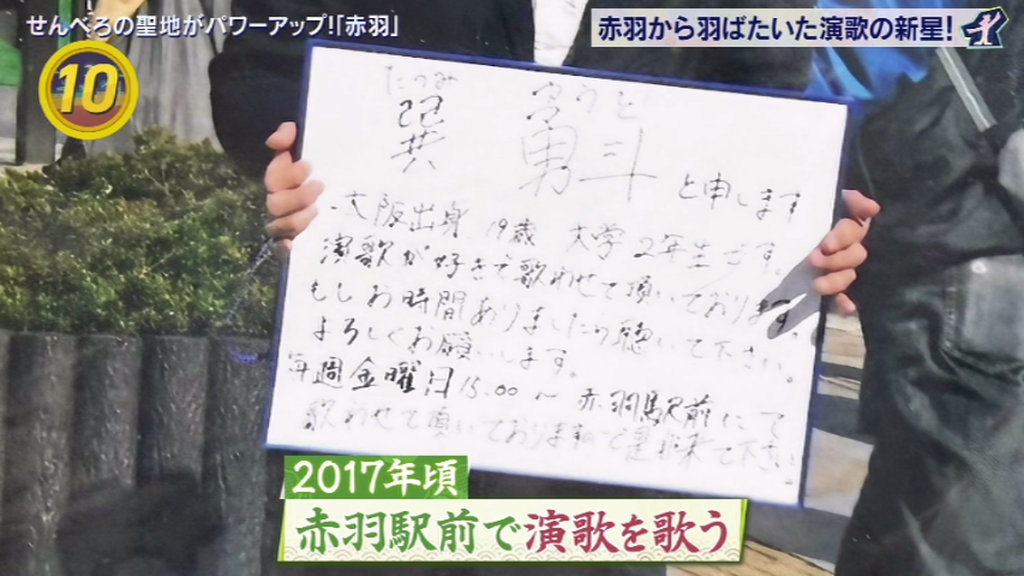 せんべろの聖地がパワーアップ!「赤羽」
赤羽から羽ばたいた演歌の新星!
10
たつみ ゆうと
巽 勇斗 と申します
大阪出身 19歳 大学2年生です。
演歌が好きで歌わせて頂いております。
もしお時間ありましたら聴いて下さい。
よろしくお願いします。
毎週金曜日15:00〜赤羽駅前にて
歌わせて頂いております
下さい
2017年頃
赤羽駅前で演歌を歌う